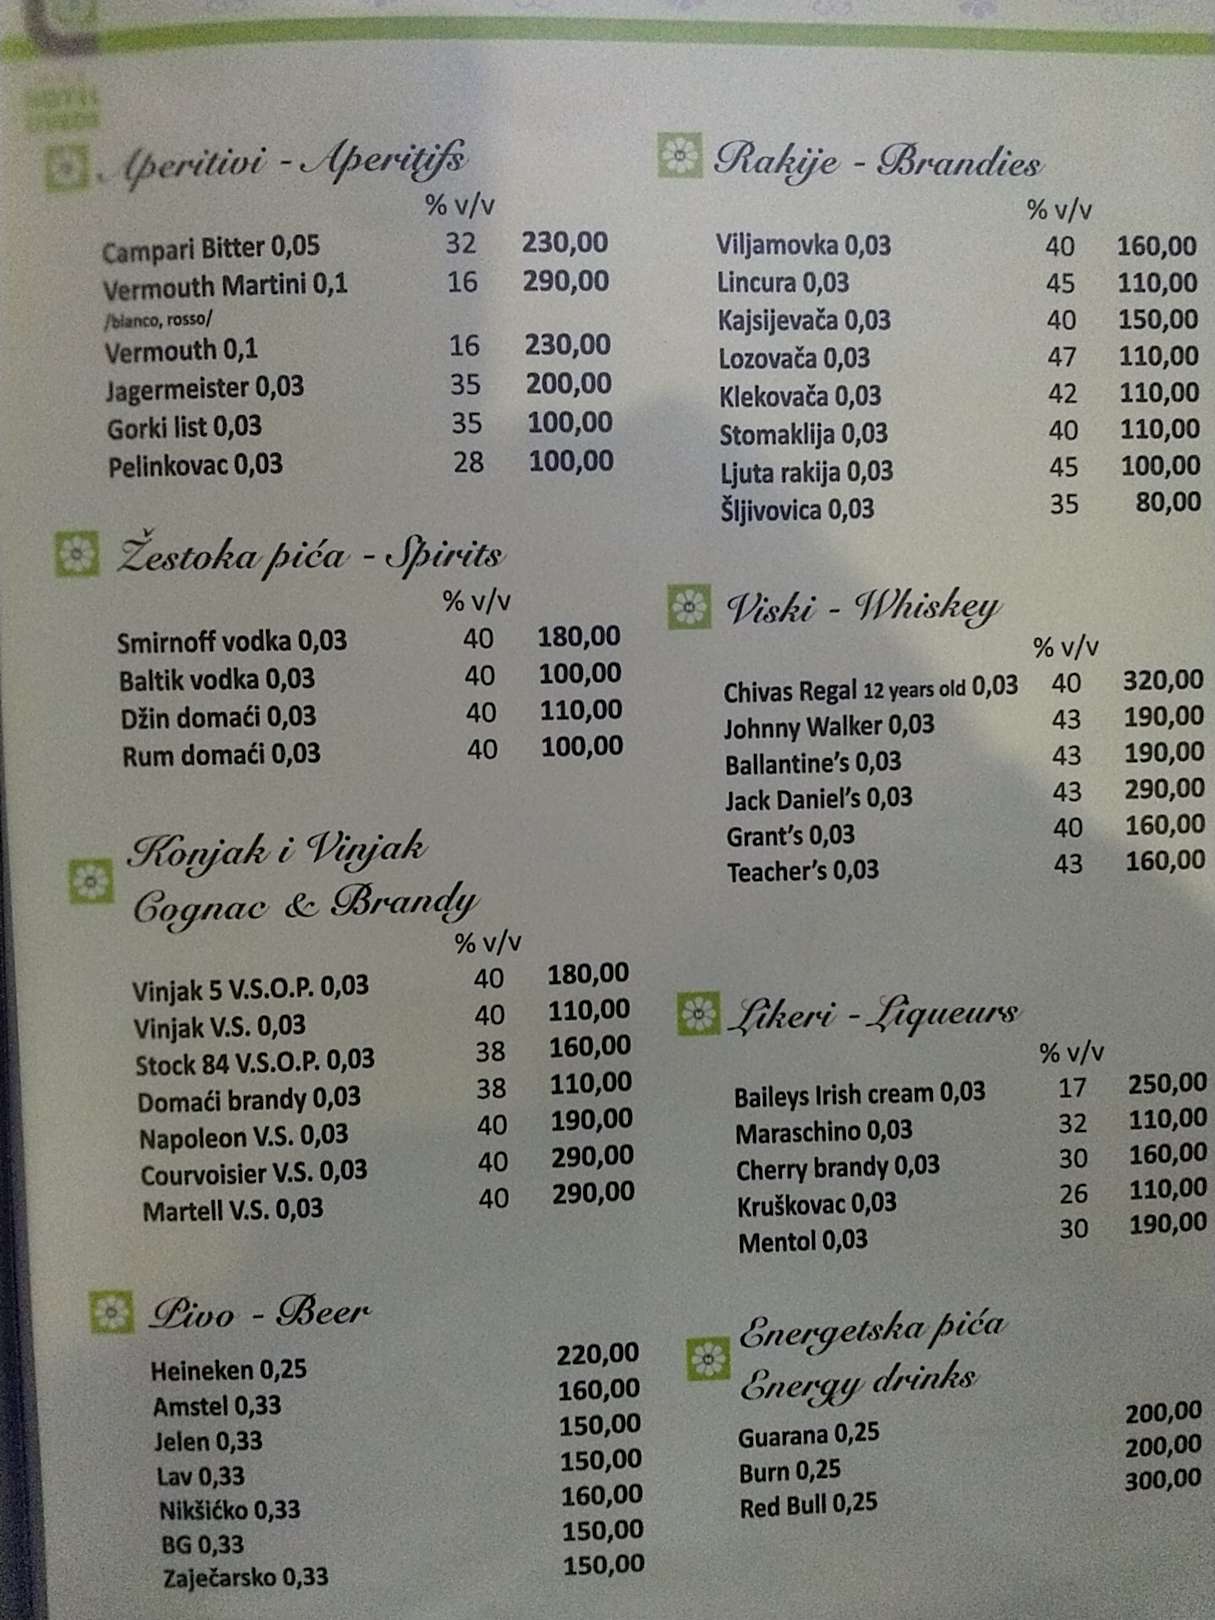 Aperitivi - Aperitifs
% v/v
Campari Bitter 0,05 32 230,00
Vermouth Martini 0,1 16 290,00
/bianco, rosso/
Vermouth 0,1 16 230,00
Jagermeister 0,03 35 200,00
Gorki list 0,03 35 100,00
Pelinkovac 0,03 28 100,00
Žestoka pića - Spirits
% v/v
Smirnoff vodka 0,03 40 180,00
Baltik vodka 0,03 40 100,00
Džin domaći 0,03 40 110,00
Rum domaći 0,03 40 100,00
Konjak i Vinjak
Cognac & Brandy
% v/v
Vinjak 5 V.S.O.P. 0,03 40 180,00
Vinjak V.S. 0,03 40 110,00
Stock 84 V.S.O.P. 0,03 38 160,00
Domaći brandy 0,03 38 110,00
Napoleon V.S. 0,03 40 190,00
Courvoisier V.S. 0,03 40 290,00
Martell V.S. 0,03 40 290,00
Pivo - Beer
Heineken 0,25 220,00
Amstel 0,33 160,00
Jelen 0,33 150,00
Lav 0,33 150,00
Nikšićko 0,33 160,00
BG 0,33 150,00
Zaječarsko 0,33 150,00
Rakije - Brandies
% v/v
Viljamovka 0,03 40 160,00
Lincura 0,03 45 110,00
Kajsijevača 0,03 40 150,00
Lozovača 0,03 47 110,00
Klekovača 0,03 42 110,00
Stomaklija 0,03 40 110,00
Ljuta rakija 0,03 45 100,00
Šljivovica 0,03 35 80,00
Viski - Whiskey
% v/v
Chivas Regal 12 years old 0,03 40 320,00
Johnny Walker 0,03 43 190,00
Ballantine's 0,03 43 190,00
Jack Daniel's 0,03 43 290,00
Grant's 0,03 40 160,00
Teacher's 0,03 43 160,00
Likeri - Liqueurs
% v/v
Baileys Irish cream 0,03 17 250,00
Maraschino 0,03 32 110,00
Cherry brandy 0,03 30 160,00
Kruškovac 0,03 26 110,00
Mentol 0,03 30 190,00
Energetska pića
Energy drinks
Guarana 0,25 200,00
Burn 0,25 200,00
Red Bull 0,25 300,00